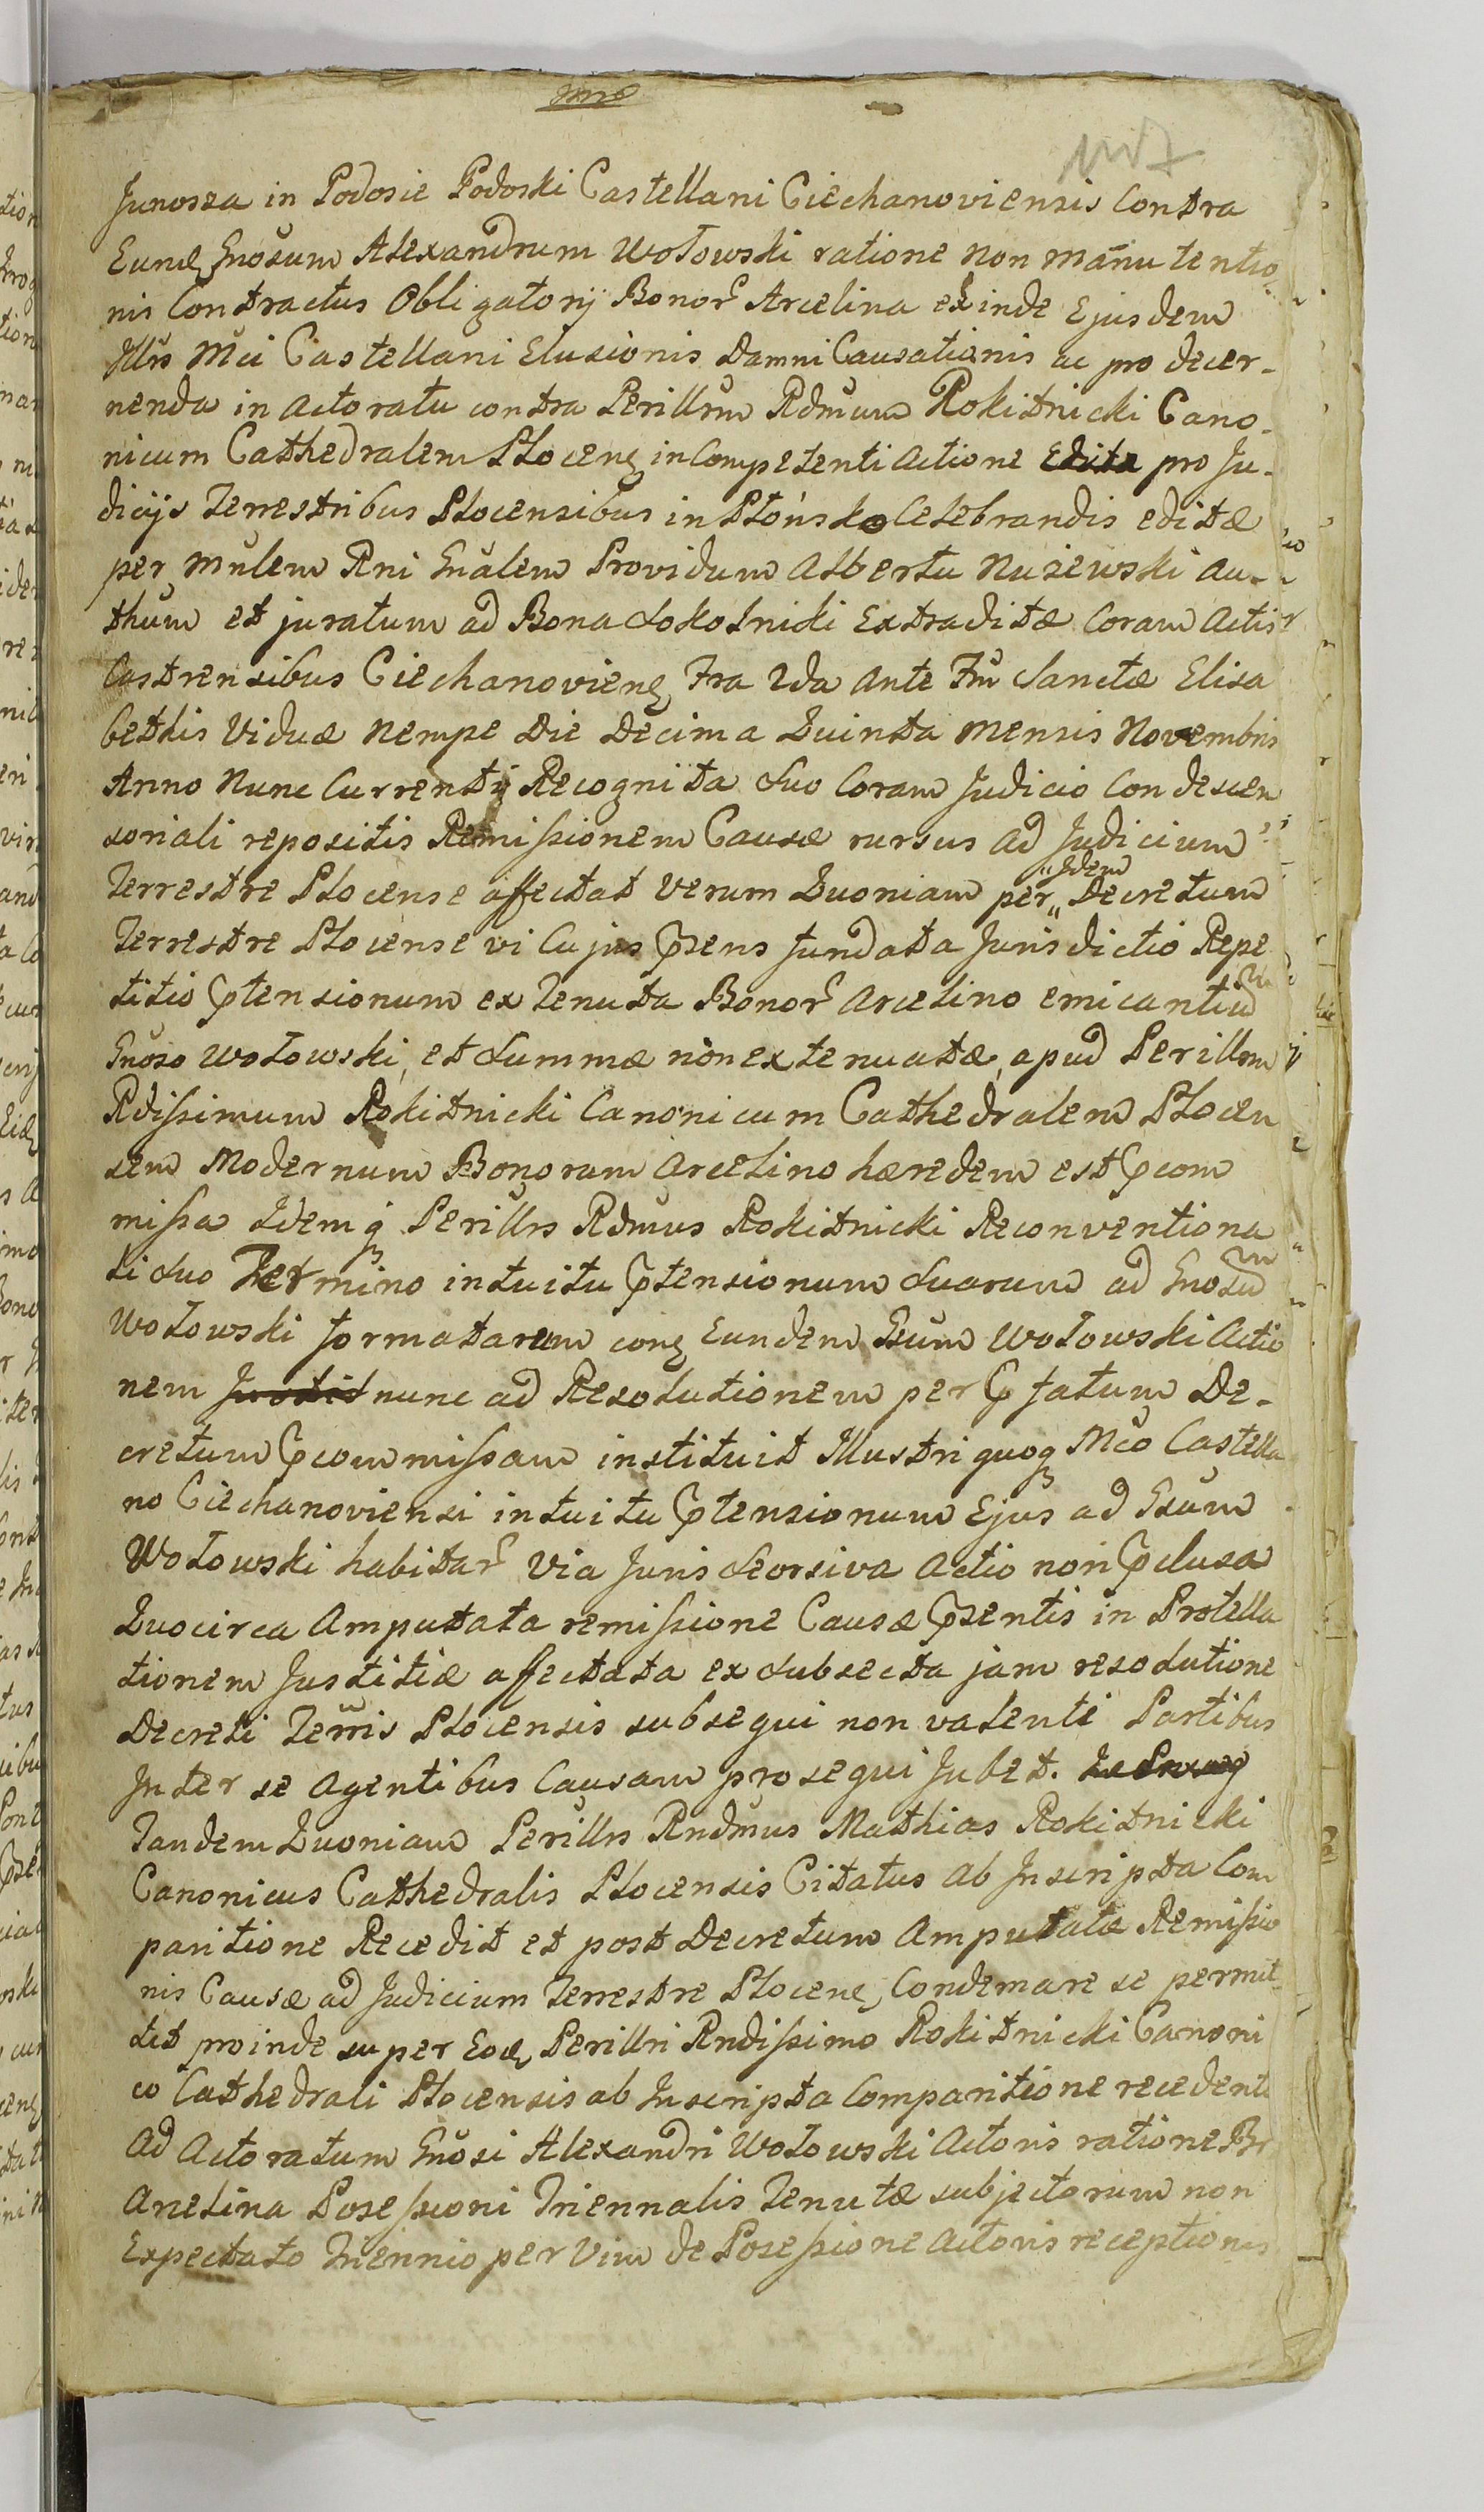 Junosza in Podosie Podoski Castellani Ciechanoviensis Contra
Eundꝫ Gnosum Alexandrum Wołowski ratione non manu tentio
nis Contractus Obligatorij Bonor Arcelina exinde Ejusdem
Illris Mci Castellani Elusionis Damni Causationis ac pro decer-
nenda in actoratu contra Perillrm Rdmum Rokitnicki Cano-
nicum Cathedralem Plocenꝫ in Competenti actione pro Ju-
dicijs Terrestribus Plocensibus in Płońsko Celebrandis editæ
per Mnlem Rni Gnalem Providum Albertu Nuzewski au-
thum et juratum ad Bona Sokolniki Extraditæ Coram Actis
Castrensibus Ciechanovienꝫ Fra 2da ante Ftu Sanctæ Elisa
bethis Viduæ nempe Die Decima Quinta mensis Novembris
Anno Nunc Currenti Recognita suo Coram Judicio Condescen
soriali repositis Remissionem Causæ rursus ad Judicium
Idem
Terrestre Plocense affectat Verum Quoniam per Decretum
Terrestre Plocense vi Cujus Psens fundata Jurisdictio Repe
titio Ptensionum ex Tenuta Bonor Arcelino emicantiu
Gnoso Wołowski, et summæ non extenuatæ, apud Perillrm
Rdissimum Rokitnicki Canonicum Cathedralem Plocen
sem Modernum Bonorum Arcelino hæredem est Pcom
missa Idemqꝫ Perillris Rdmus Rokitnicki Reconventiona
li suo Termino intuitu Ptensionum suarum ad Gnosu
Wołowski formatarum conꝫ Eundem Gsum Wołowski Actio
nem nunc ad Resolutionem per P fatum De-
cretum Pcommissam instituit Illustri quoqꝫ Mco Castella
no Ciechanoviensi intuitu Ptensionum Ejus ad Gsum
Wołowski habitar via Juris seorsiva actio non Pclusa
Quocirca Amputata remissione Causæ Psentis in Protella
tionem Justitiæ affectata ex subsecta jam resolutione
Decreti Terris Plocensis subsequi non valenti Partibus
Inter se Agentibus Causam prosequi Jubet.
Tandem Quoniam Perillris Rndmus Mathias Rokitnicki
Canonicus Cathedralis Plocensis Citatus ab Inscripta Com
paritione Recedit et post Decretum Amputatæ Remissio
nis Causæ ad Judicium Terrestre Plocenꝫ Condemare se permit
tit proinde super Eodꝫ Perillri Rndissimo Rokitnicki Canoni
co Cathedrali Plocensis ab Inscripta Comparitione recedenti
ad Actoratum Gnosi Alexandri Wołowski Actoris ratione Br
Arcelina Posessioni Triennalis Tenutæ subjectorum non
Expectato Triennio per Vim de Posessione Actoris receptionis